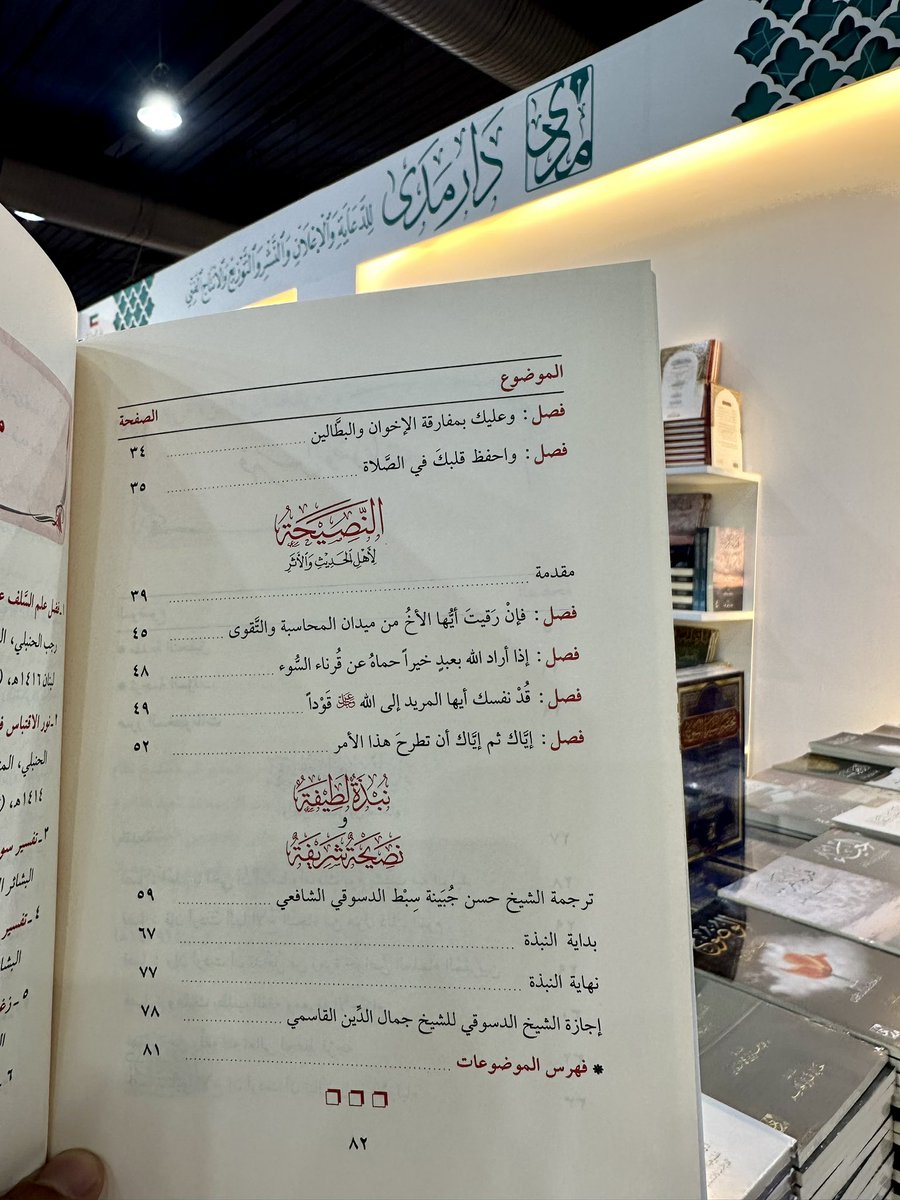 مدى
دار مدى
للدعاية والإعلان والنشر والتوزيع والإنتاج الفني
الموضوع
الصفحة
فصل: وعليك بمفارقة الإخوان والبطَّالين ٣٤
فصل: واحفظ قلبكَ في الصَّلاة ٣٥
النَّصِيحَةُ
لِأَهْلِ الحَدِيثِ وَالأَثَرِ
مقدمة ٣٩
فصل: فإنْ رَقيتَ أيُّها الأخُ من ميدان المحاسبة والتَّقوى ٤٥
فصل: إذا أراد الله بعبدٍ خيراً حماهُ عن قُرناء السُّوء ٤٨
فصل: قُدْ نفسك أيها المريد إلى الله ﷺ قَوْداً ٤٩
فصل: إيَّاك ثم إيَّاك أن تطرحَ هذا الأمر ٥٢
نُبْذَةٌ لَطِيفَةٌ
و
نَصِيحَةٌ شَرِيفَةٌ
ترجمة الشيخ حسن جُبَينة سِبْط الدسوقي الشافعي ٥٩
بداية النبذة ٦٧
نهاية النبذة ٧٧
إجازة الشيخ الدسوقي للشيخ جمال الدِّين القاسمي ٧٨
* فهرس الموضوعات ٨١
٨٢
فضل علم السَّلف
رجب الحنبلي،
لبنان ١٤١٦هـ،
نور الاقتباس
الحنبلي،
١٤١٤هـ،
٣ ـ تفسير
البشائر
٤ ـ تفسير
٥ ـ
٦ ـ